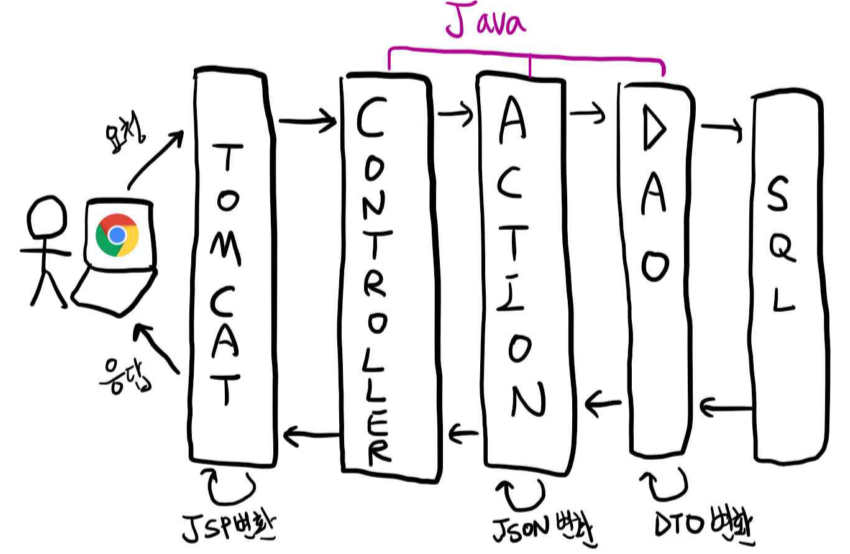 Java
요청
TOMCAT
CONTROLLER
ACTION
DAO
SQL
응답
JSP변환
JSON변환
DTO변환